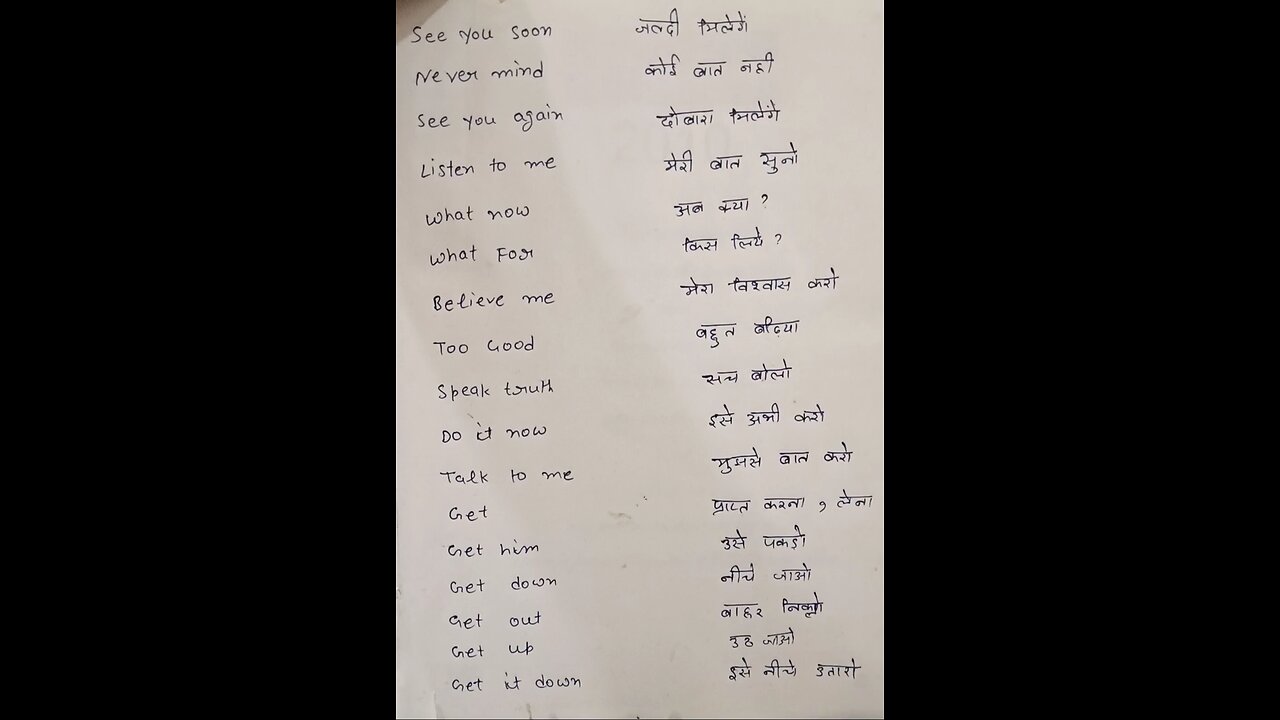 See you soon जल्दी मिलेगें
Never mind कोई बात नही
See you again दोबारा मिलेंगे
Listen to me मेरी बात सुनो
What now अब क्या ?
What For किस लिये ?
Believe me मेरा विश्वास करो
Too Good बहुत बढ़िया
Speak truth सच बोलो
Do it now इसे अभी करो
Talk to me मुझसे बात करो
Get प्राप्त करना , लेना
Get him उसे पकड़ो
Get down नीचे जाओ
Get out बाहर निकलो
Get up उठ जाओ
Get it down इसे नीचे उतारो